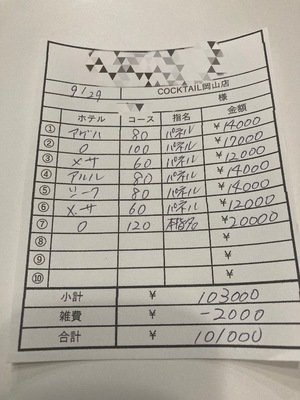 COCKTAIL岡山店
9/29 様
ホテル コース 指名 金額
① アゲハ 80 パネル ¥14000
② O 100 パネル ¥17000
③ メサ 60 パネル ¥12000
④ アルル 80 パネル ¥14000
⑤ 80 パネル ¥14000
⑥ メサ 60 パネル ¥12000
⑦ O 120 本指名 ¥20000
⑧ ¥
⑨ ¥
⑩ ¥
小計 ¥ 103000
雑費 ¥ -2000
合計 ¥ 101000